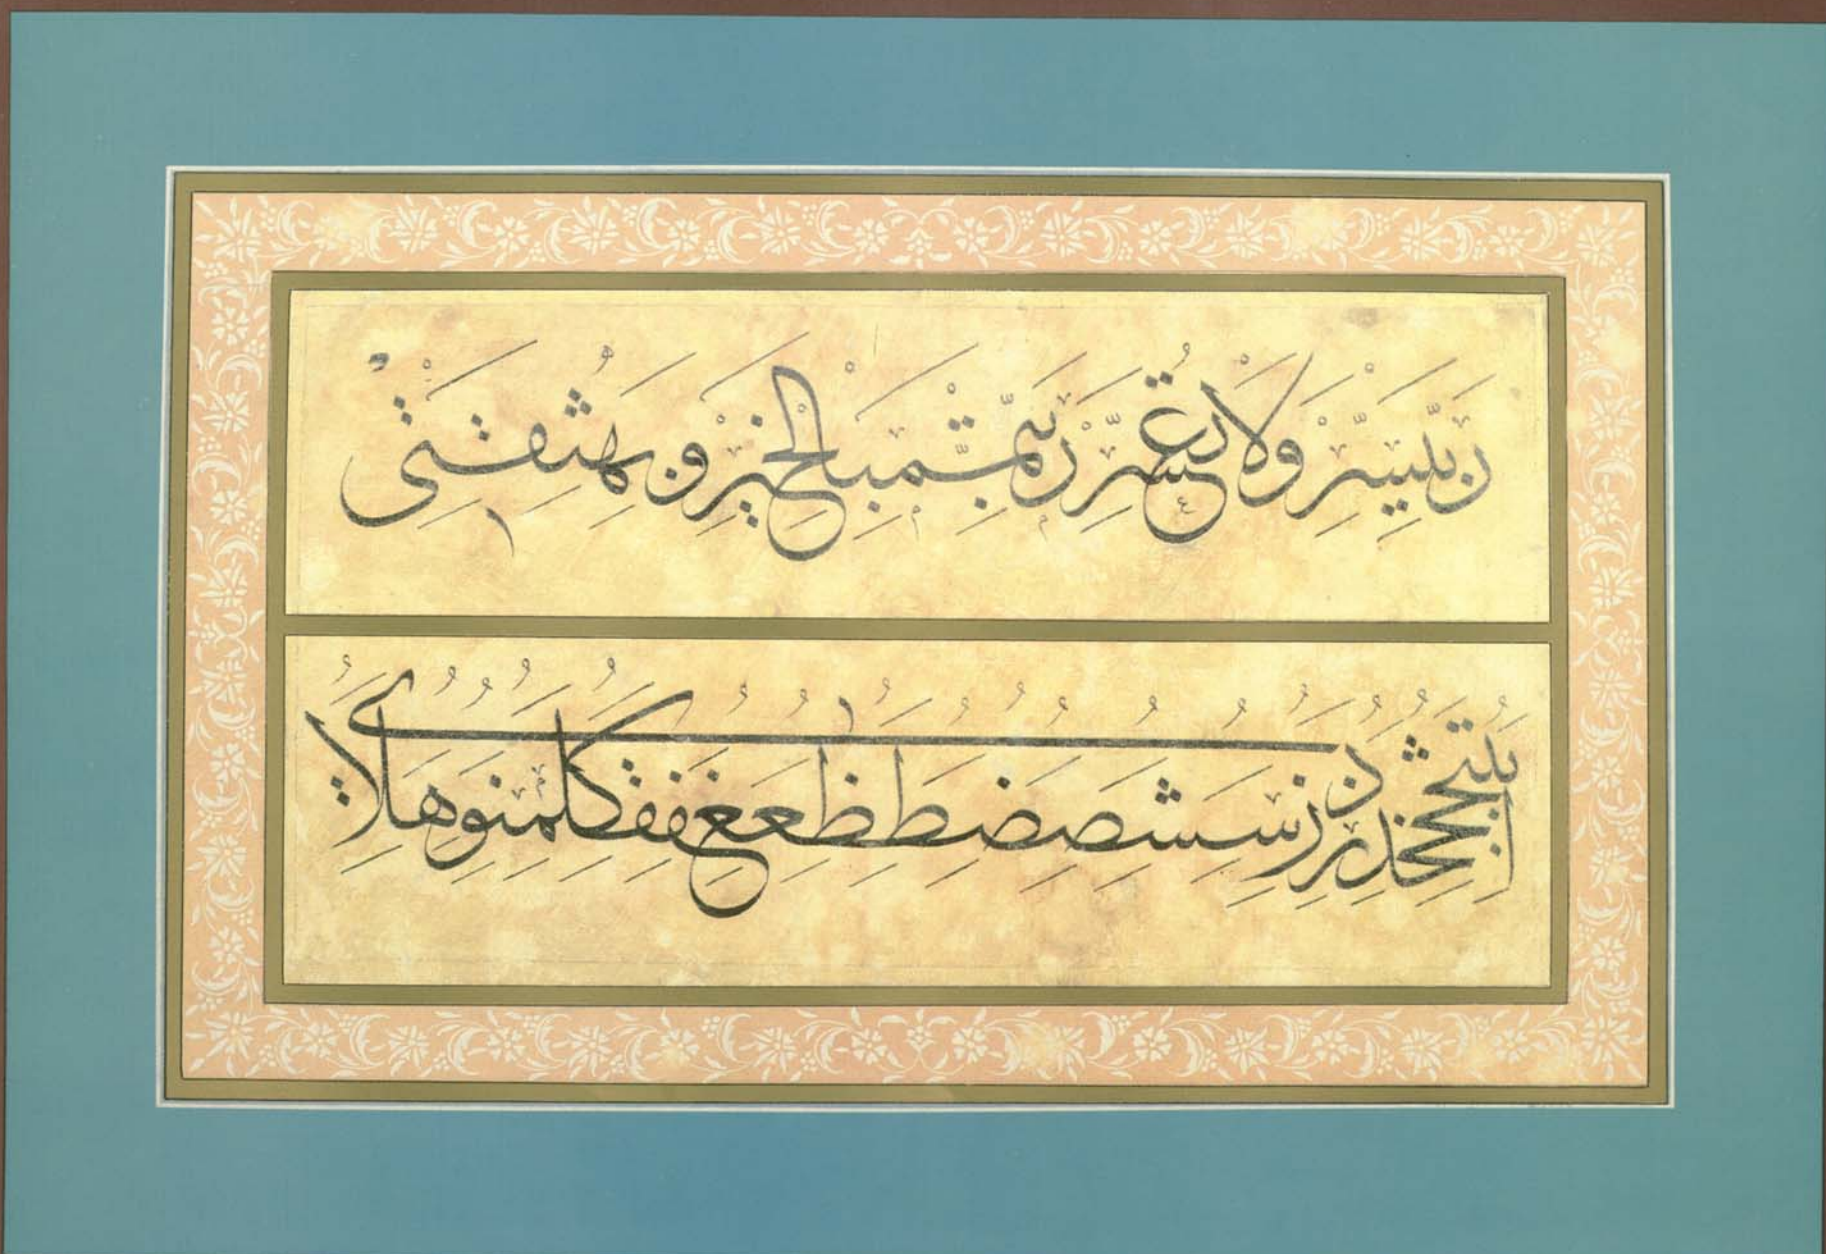 رب يسر ولا تعسر رب تمم بالخير وبه ثقتي
ا ب ت ث ج ح خ د ذ ر ز س ش ص ض ط ظ ع غ ف ق ك ل م ن و ه لا ي